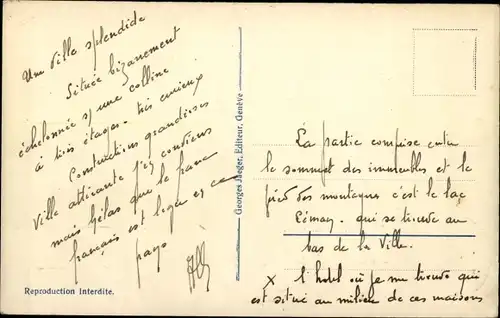 Une Ville splendide
Située bizarement
échelonnée s/ une colline
à trois étages. très curieux
Constructions grandioses
Ville attirante j'y
mais hélas que le franc
français est léger en ce
pays
Reproduction Interdite.
Georges Jaeger, Editeur, Genève
La partie comprise entre
le sommet des immeubles et le
pied des montagnes c'est le lac
Léman. qui se trouve au
bas de la Ville.
x l'hotel où je me trouve qui
est situé au milieu de ces maisons